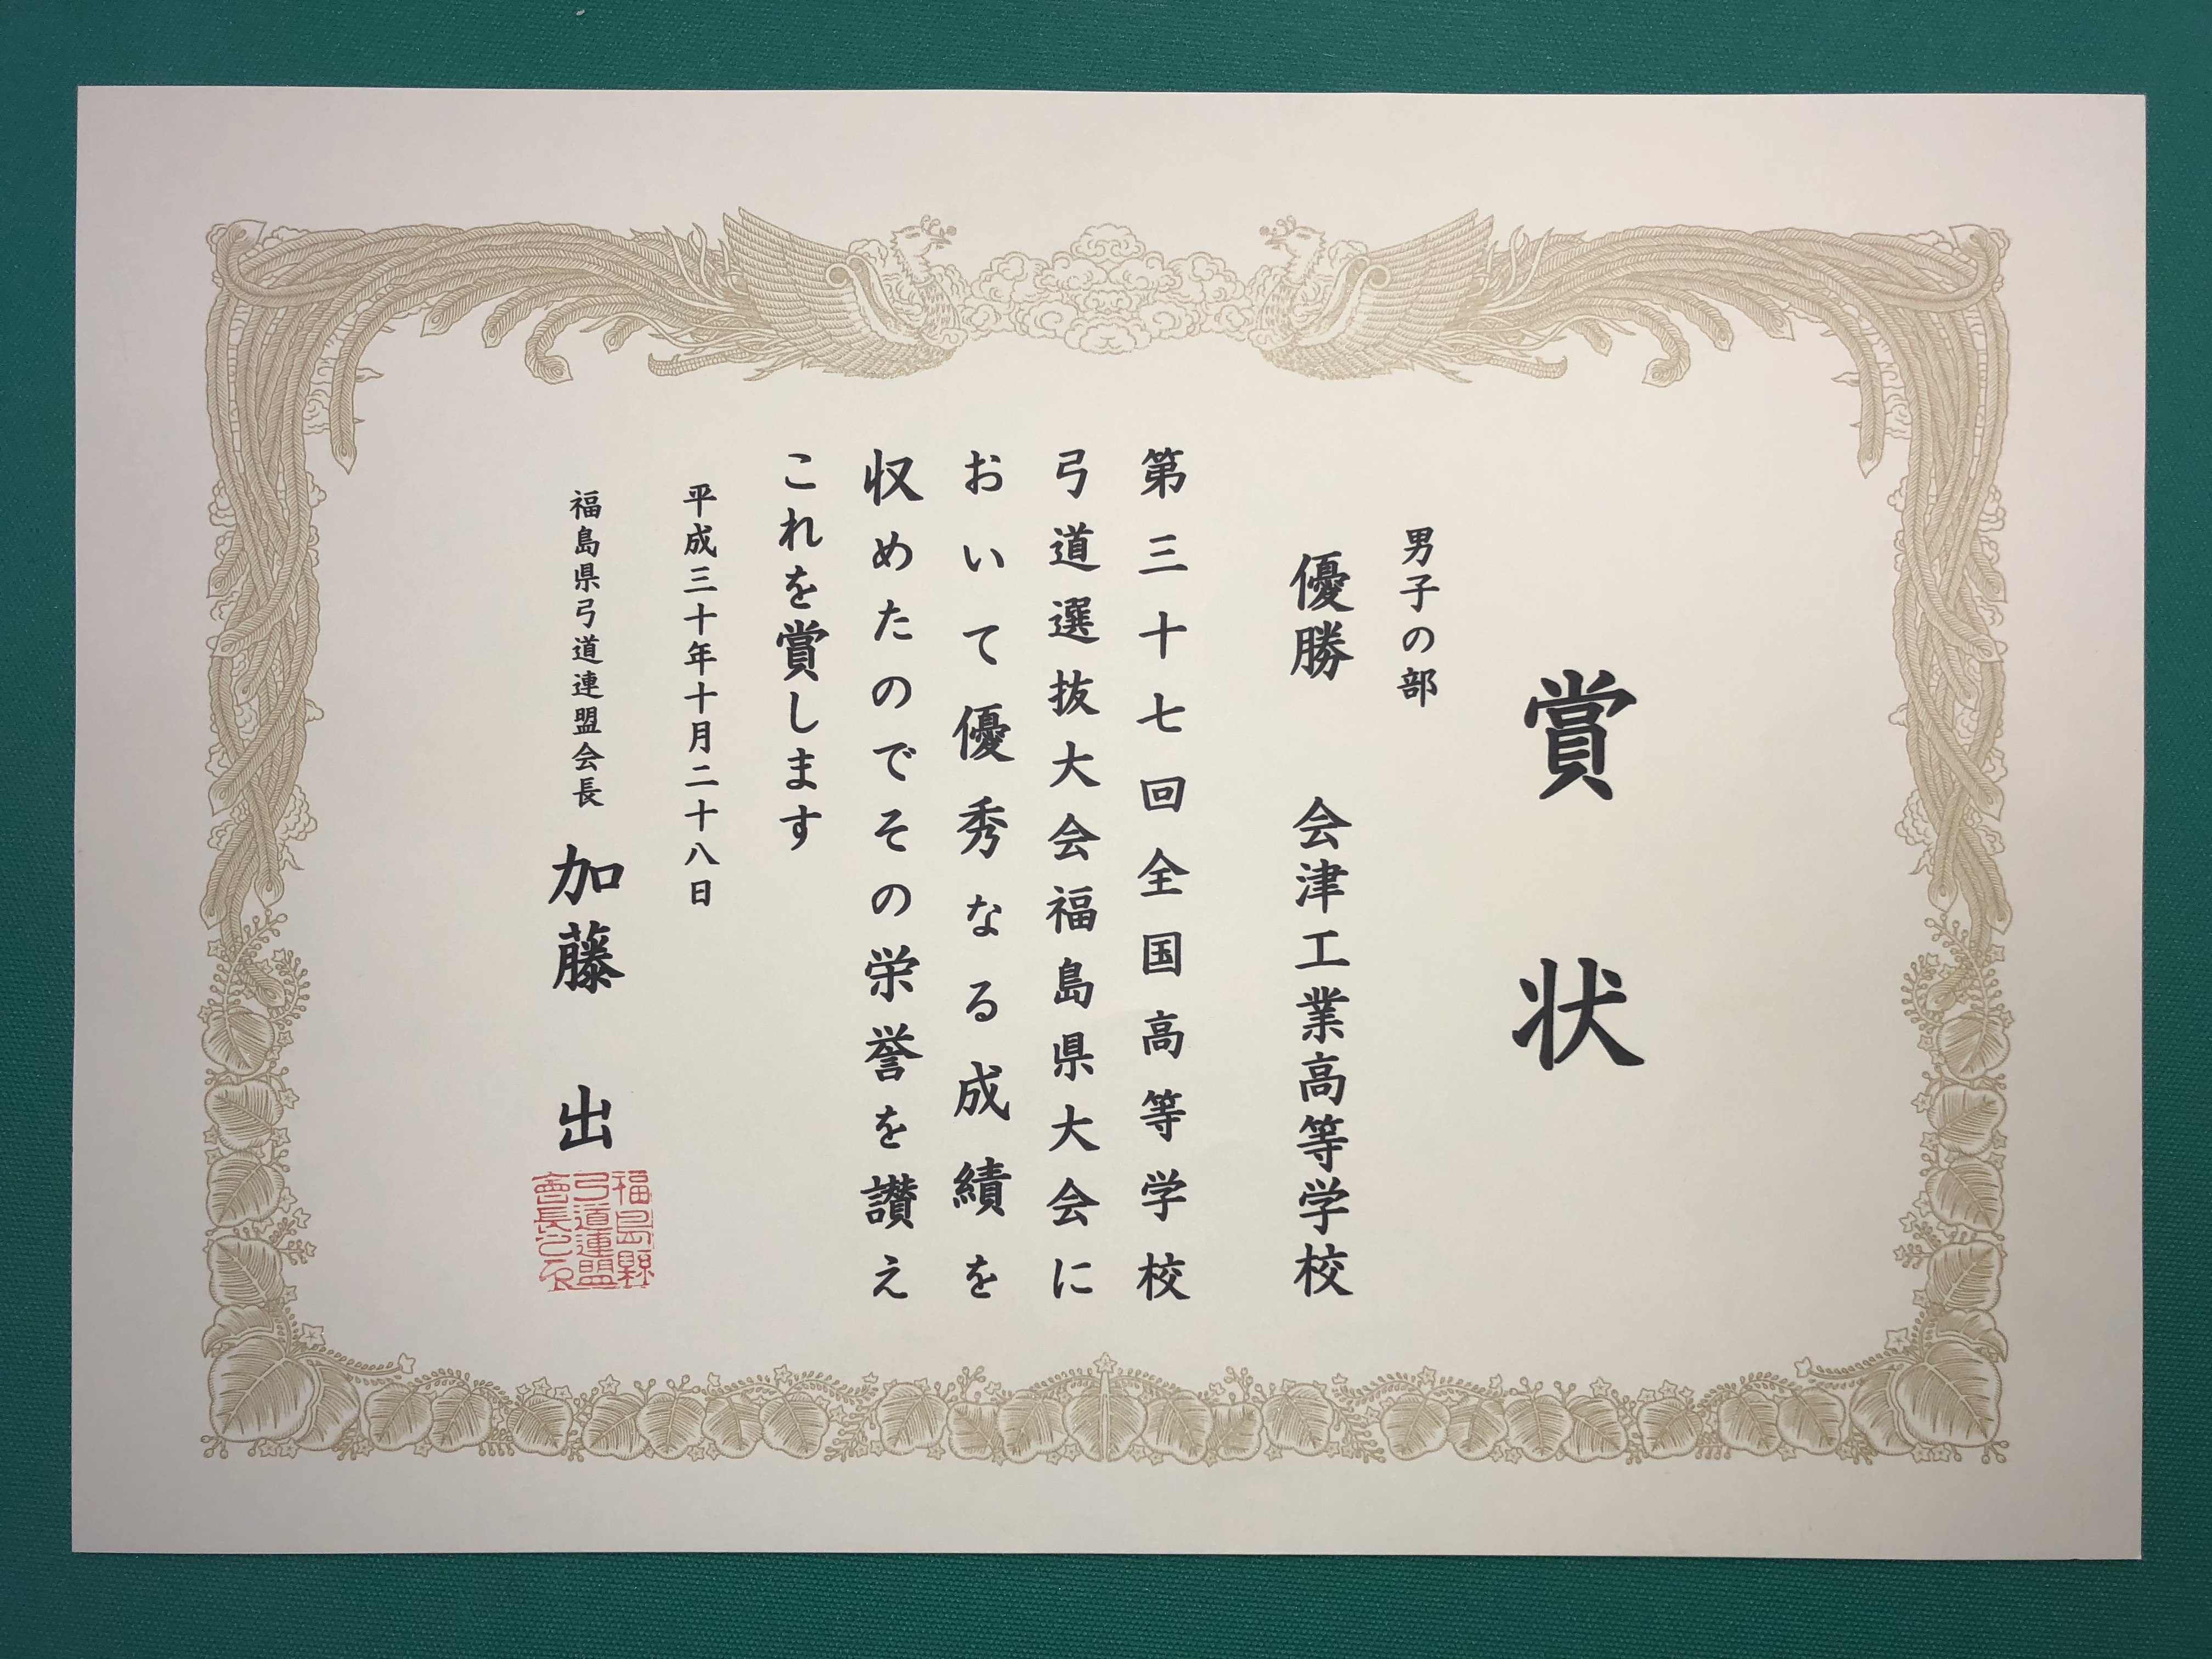 賞状
男子の部
優勝 会津工業高等学校
第三十七回全国高等学校
弓道選抜大会福島県大会に
おいて優秀なる成績を
収めたのでその栄誉を讃え
これを賞します
平成三十年十月二十八日
福島県弓道連盟会長 加藤 出
福島縣
弓道連盟
會長之印